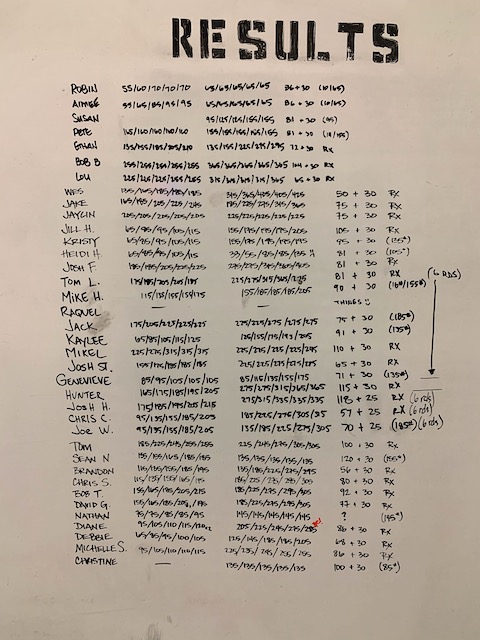 RESULTS
ROBIN 55/60/70/70/70 65/65/65/65/65 36 + 30 (10/65)
AIMEE 55/65/85/95/95 65/65/65/65/65 86 + 30 (10/65)
SUSAN 95/125/125/155/155 81 + 30 (95)
PETE 155/155/155/155/155 81 + 30
ETHAN 135/155/185/205/210 135/155/225/275/295 72 + 30 RX
BOB B 255/255/255/255/255 365/365/365/365/365 104 + 30 RX
LOU 225/225/225/255/255 65 + 30 RX
WES 345/365/405/405/425 50 + 30 RX
JAKE 185/225/275/345/365 75 + 30 RX
JAYLIN 205/205/205/205/205 225/225/225/225/225 75 + 30 RX
JILL H. 65/95/95/105/115 155/195/195/195/205 105 + 30 RX
KRISTY 65/95/95/105/115 155/175/195/195/195 95 + 30 (135#)
HEIDI H 81 + 30 (105#)
JOSH F 81 + 30 RX
TOM L. 175/185/205/205/185 81 + 30 RX (6 RDS)
MIKE H. 115/135/155/155/175 155/185/185/185/205 90 + 30
RAQUEL — — THINGS
JACK 175/205/215/225/225 225/275/275/275/275 75 + 30 (185#)
KAYLEE 65/85/105/115/125 91 + 30 (135#)
MIKEL 225/275/315/315/315 225/225/225/225/295 110 + 30 RX
JOSH ST. 155/175/185/185/185 225/225/275/275/275 65 + 30 RX
GENEVIEVE 85/95/105/105/105 85/115/135/155/175 71 + 30 (135#)
HUNTER 165/175/185/195/205 275/275/315/365/365 115 + 30 RX
JOSH H. 175/185/195/205/215 275/315/335/335/335 118 + 25 RX (6 rds)
CHRIS C. 95/135/155/185/205 185/225/275/305/315 57 + 25 RX (6 rds)
JOE W. 95/135/155/185/205 135/185/225/275/305 70 + 25 (185#) (6 rds)
TOM 185/225/245/255/255 225/245/275/305/305 100 + 30 RX
SEAN N 135/155/165/185/185 135/135/135/135/135 120 + 30 (155#)
BRANDON 115/135/155/185/195 135/185/225/275/295 56 + 30 RX
CHRIS S. 115/135/155/165/175 185/225/275/295/305 80 + 30 RX
BOB T. 155/165/185/205/215 185/225/275/295/305 92 + 30 RX
DAVID G. 155/165/185/205/195 185/225/275/295/305 97 + 30 RX
NATHAN 75/75/85/85/95 145/145/145/145/145 ? (145#)
DIANE 95/105/110/115/120 205/225/245/275/285 86 + 30 RX
DEBBIE 65/85/95/100/105 125/145/185/195/205 68 + 30 RX
MICHELLE S. 95/105/110/110/115 225/235/245/255/255 86 + 30 RX
CHRISTINE — 135/135/135/135/135 100 + 30 (85#)